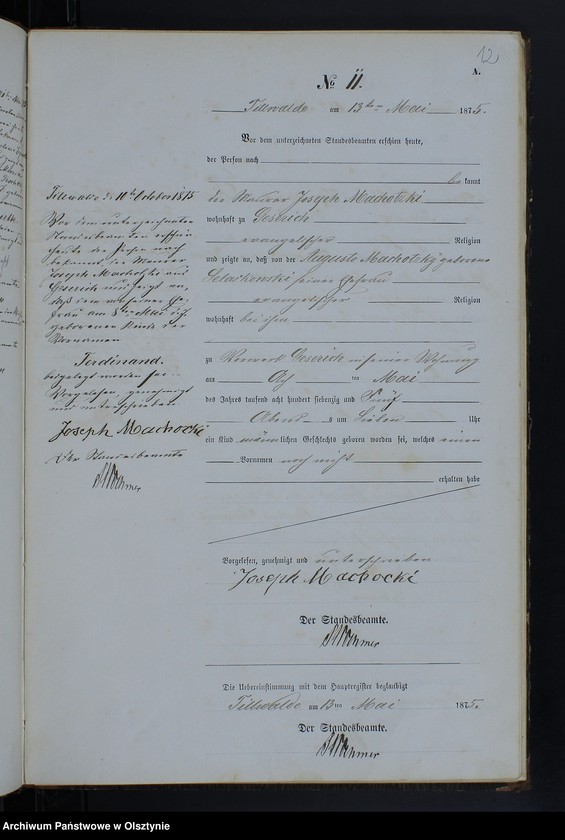 12
A.
No 11.
Tillwalde am 13ten Mai 1875.
Vor dem unterzeichneten Standesbeamten erschien heute,
der Person nach
bekannt
der Maurer Joseph Machotzki
wohnhaft zu Geserich
evangelischer Religion
und zeigte an, daß von der Auguste Machotzky geborene
seiner Ehefrau
evangelischer Religion
wohnhaft bei ihm
zu Vorwerk Geserich in seiner Wohnung
am Acht ten Mai
des Jahres tausend acht hundert siebenzig und Fünf
Abends um Sieben Uhr
ein Kind männlichen Geschlechts geboren worden sei, welches einen
Vornamen noch nicht
erhalten habe
Vorgelesen, genehmigt und unterschrieben
Joseph Machocki
Der Standesbeamte.
Die Uebereinstimmung mit dem Hauptregister beglaubigt
Tillwalde am 13ten Mai 1875.
Der Standesbeamte.
Tillwalde d 10ten October 1875
Vor dem unterzeichneten
Standesbeamten erschien
heute der Person nach
bekannt der Maurer
Joseph Machotzki aus
Geserich und zeigt an,
daß dem von seiner Ehe
frau am 8ten Mai d. J.
geborenen Kinde der
Vornamen
Ferdinand.
beigelegt worden sei.
Vorgelesen genehmigt
und unterschrieben
Joseph Machocki
Der Standesbeamte
Archiwum Państwowe w Olsztynie